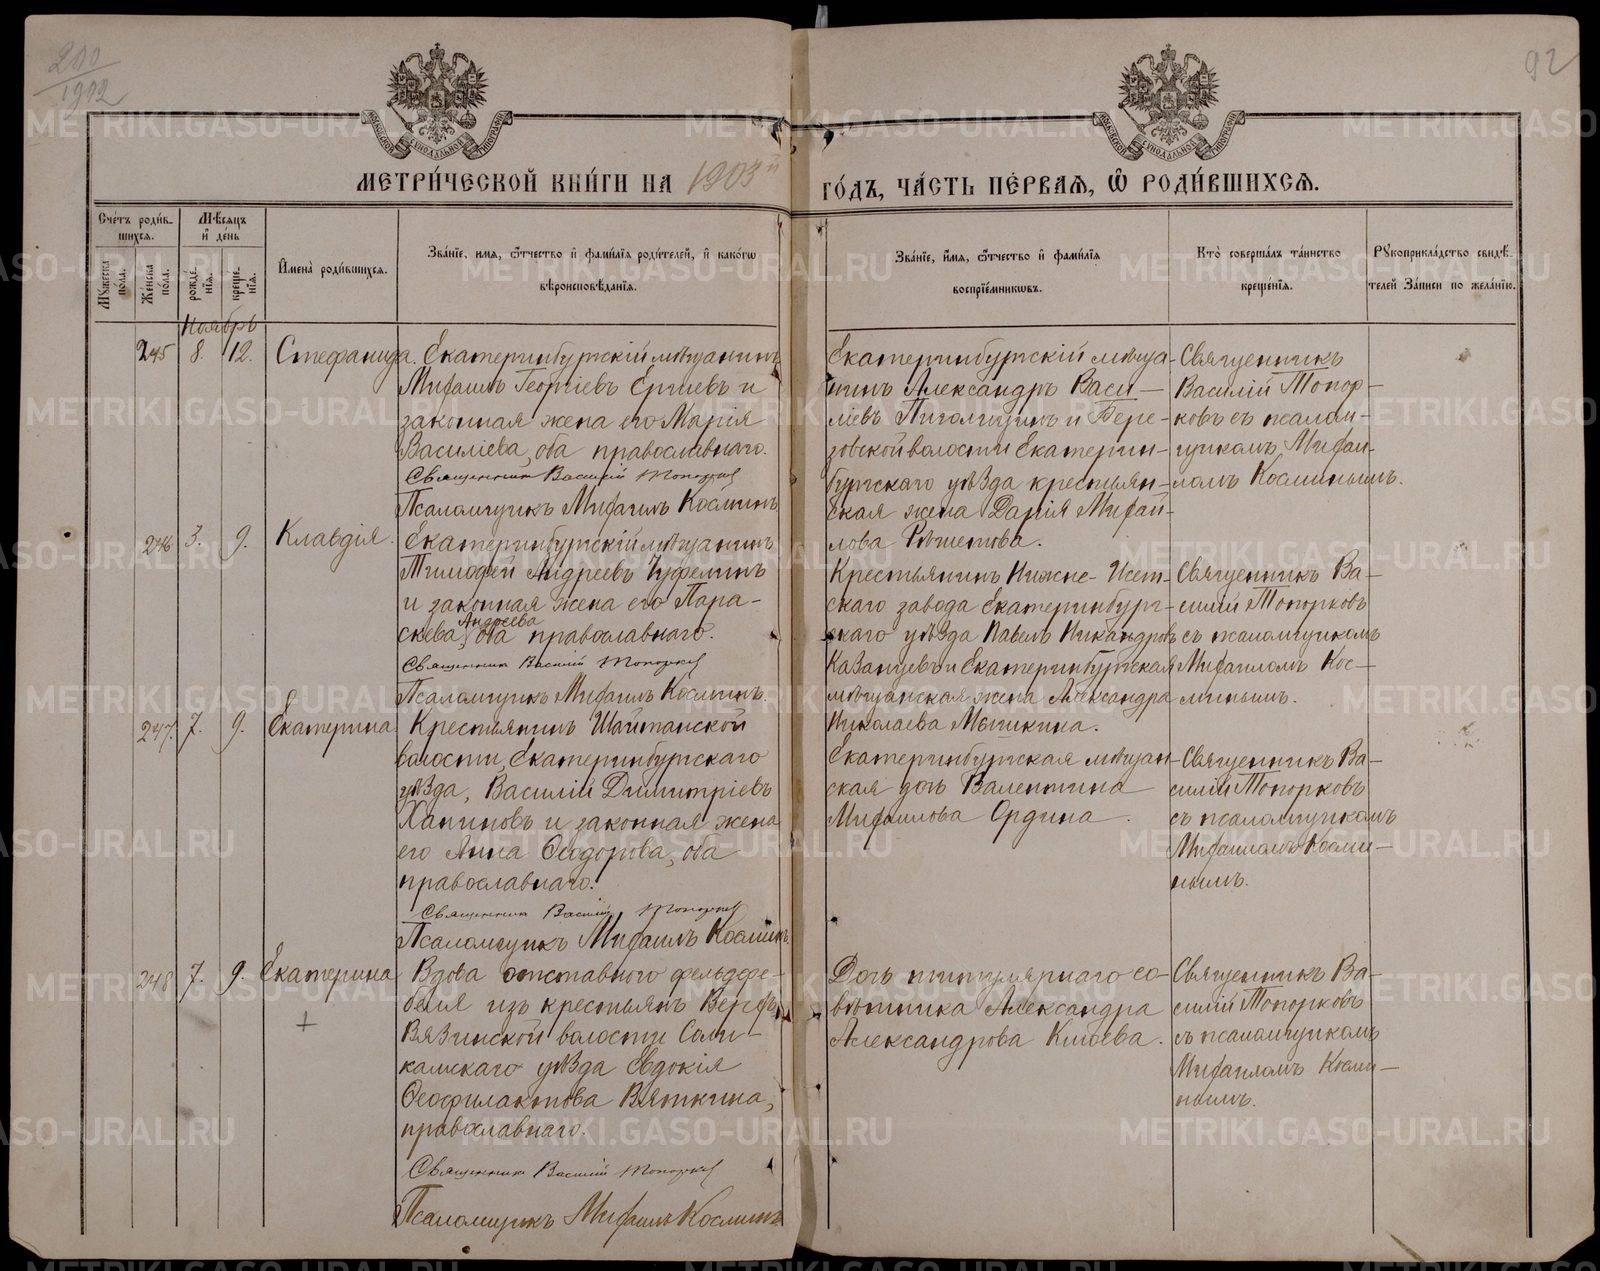 200
1902
92
МЕТРИ́ЧЕСКОЙ КНИ́ГИ НА 1903й ГО́ДЪ, ЧА́СТЬ ПЕ́РВАѦ, Ѡ РОДИ́ВШИХСѦ.
Сче́тъ роди́в-
шихсѧ.
Мꙋ́жеска по́ла.
Же́нска по́ла.
Мѣ́сѧцъ
и҆ де́нь
рожде́нїѧ.
креще́нїѧ.
И҆мена̀ роди́вшихсѧ.
Зва́нїе, и́мѧ, ѻ҆́тчество и҆ фами́лїѧ роди́телей, и҆ како́гѡ
вѣроисповѣ́данїѧ.
Зва́нїе, и҆́мѧ, ѻ҆́тчество и҆ фами́лїѧ
воспрїе́мникѡвъ.
Кто̀ соверша́лъ та́инство
креще́нїѧ.
Рꙋкоприкла́дство свидѣ́-
телей за́писи по жела́нїю.
Ноябрь
245 8. 12. Стефанида.
Екатеринбургскій мѣщанинъ
Михаилъ Георгіевъ и
законная жена его Марія
Василіева, оба православнаго.
Священникъ Василій Топорковъ
Псаломщикъ Михаилъ Косминъ
Екатеринбургскій мѣща-
нинъ Александръ Васи-
ліевъ и Бере-
зовской волости Екатерин-
бургскаго уѣзда крестьян-
ская жена Дарія Михай-
лова Рѣшетова.
Священникъ
Василій Топор-
ковъ съ псалом-
щикомъ Михаи-
ломъ Косминымъ.
246 3. 9. Клавдія.
Екатеринбургскій мѣщанинъ
Тимофей Андреевъ
и законная жена его Пара-
скева Андреева, оба православнаго.
Священникъ Василій Топорковъ
Псаломщикъ Михаилъ Косминъ.
Крестьянинъ Нижне-Исет-
скаго завода Екатеринбург-
скаго уѣзда Павелъ Никандровъ
Казанцевъ и Екатеринбургская
мѣщанская жена Александра
Николаева Мышкина.
Священникъ Ва-
силій Топорковъ
съ псаломщикомъ
Михаиломъ Кос-
минымъ.
247. 7. 9. Екатерина
Крестьянинъ Шайтанской
волости, Екатеринбургскаго
уѣзда, Василій Димитріевъ
Хапиновъ и законная жена
его Анна Ѳеодорова, оба
православнаго.
Священникъ Василій Топорковъ
Псаломщикъ Михаилъ Косминъ.
Екатеринбургская мѣщан-
ская дочь Валентина
Михаилова Ордина.
Священникъ Ва-
силій Топорковъ
съ псаломщикомъ
Михаиломъ Косми-
нымъ.
248 7. 9. Екатерина
+
Вдова отставного фельдфе-
беля изъ крестьянъ Верхъ-
Вязинской волости Соли-
камскаго уѣзда Евдокія
Ѳеофилактова Вяткина,
православнаго.
Священникъ Василій Топорковъ
Псаломщикъ Михаилъ Косминъ
Дочь титулярнаго со-
вѣтника Александра
Александрова Китаева.
Священникъ Ва-
силій Топорковъ
съ псаломщикомъ
Михаиломъ Косми-
нымъ.
METRIKI.GASO-URAL.RU